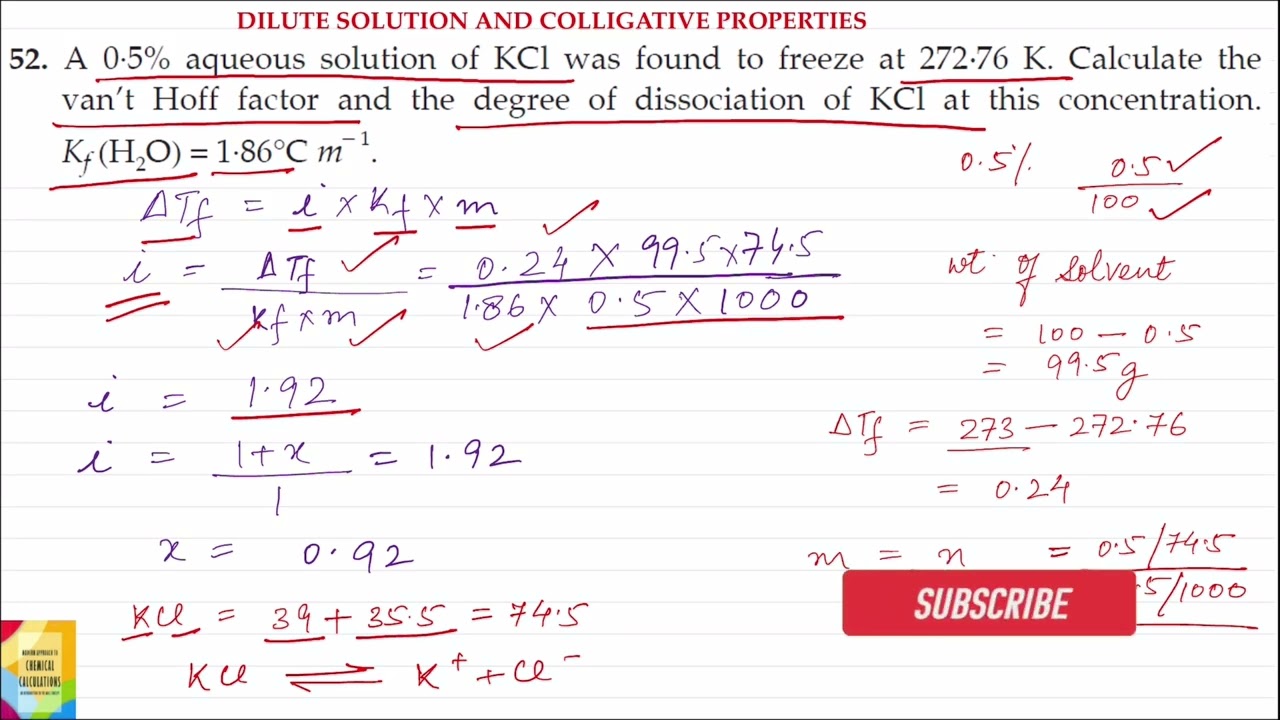 DILUTE SOLUTION AND COLLIGATIVE PROPERTIES
52. A 0·5% aqueous solution of KCl was found to freeze at 272·76 K. Calculate the
van't Hoff factor and the degree of dissociation of KCl at this concentration.
K_f (H₂O) = 1·86°C m⁻¹.
0.5% 0.5
100
ΔTf = i × Kf × m
i = ΔTf = 0.24 × 99.5 × 74.5
Kf × m 1.86 × 0.5 × 1000
wt. of solvent
= 100 – 0.5
= 99.5 g
i = 1.92
ΔTf = 273 – 272.76
= 0.24
i = 1+x = 1.92
1
x = 0.92
m = n = 0.5/74.5
5/1000
SUBSCRIBE
KCl = 39 + 35.5 = 74.5
KCl ⇌ K⁺ + Cl⁻
MODERN APPROACH TO
CHEMICAL
CALCULATIONS